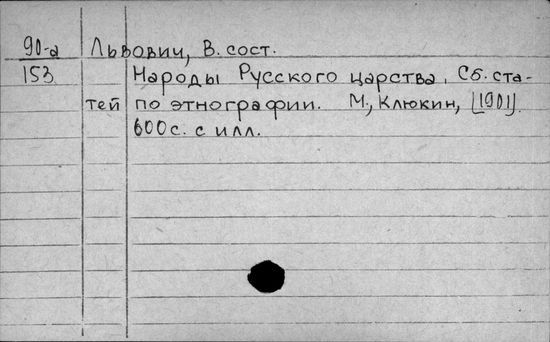 90-а Львович, В. сост.
153 Народы Русского царства. Сб. ста-
тей по этнографии. М., Клюкин, [1901].
600с. с илл.